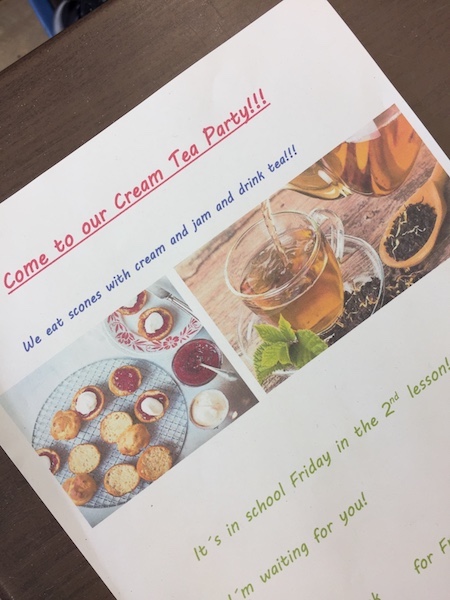 Come to our Cream Tea Party!!!
We eat scones with cream and jam and drink tea!!!
It´s in school Friday in the 2nd lesson!
I´m waiting for you!
for